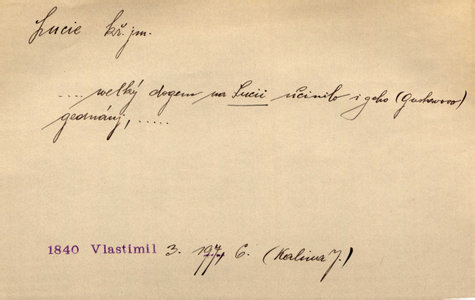 Lucie kř. jm.
.... welký dogem na Lucii učinilo i geho (Gustawowo)
gednánj, .....
1840 Vlastimil 3. 197, 6. (Kalina J.)